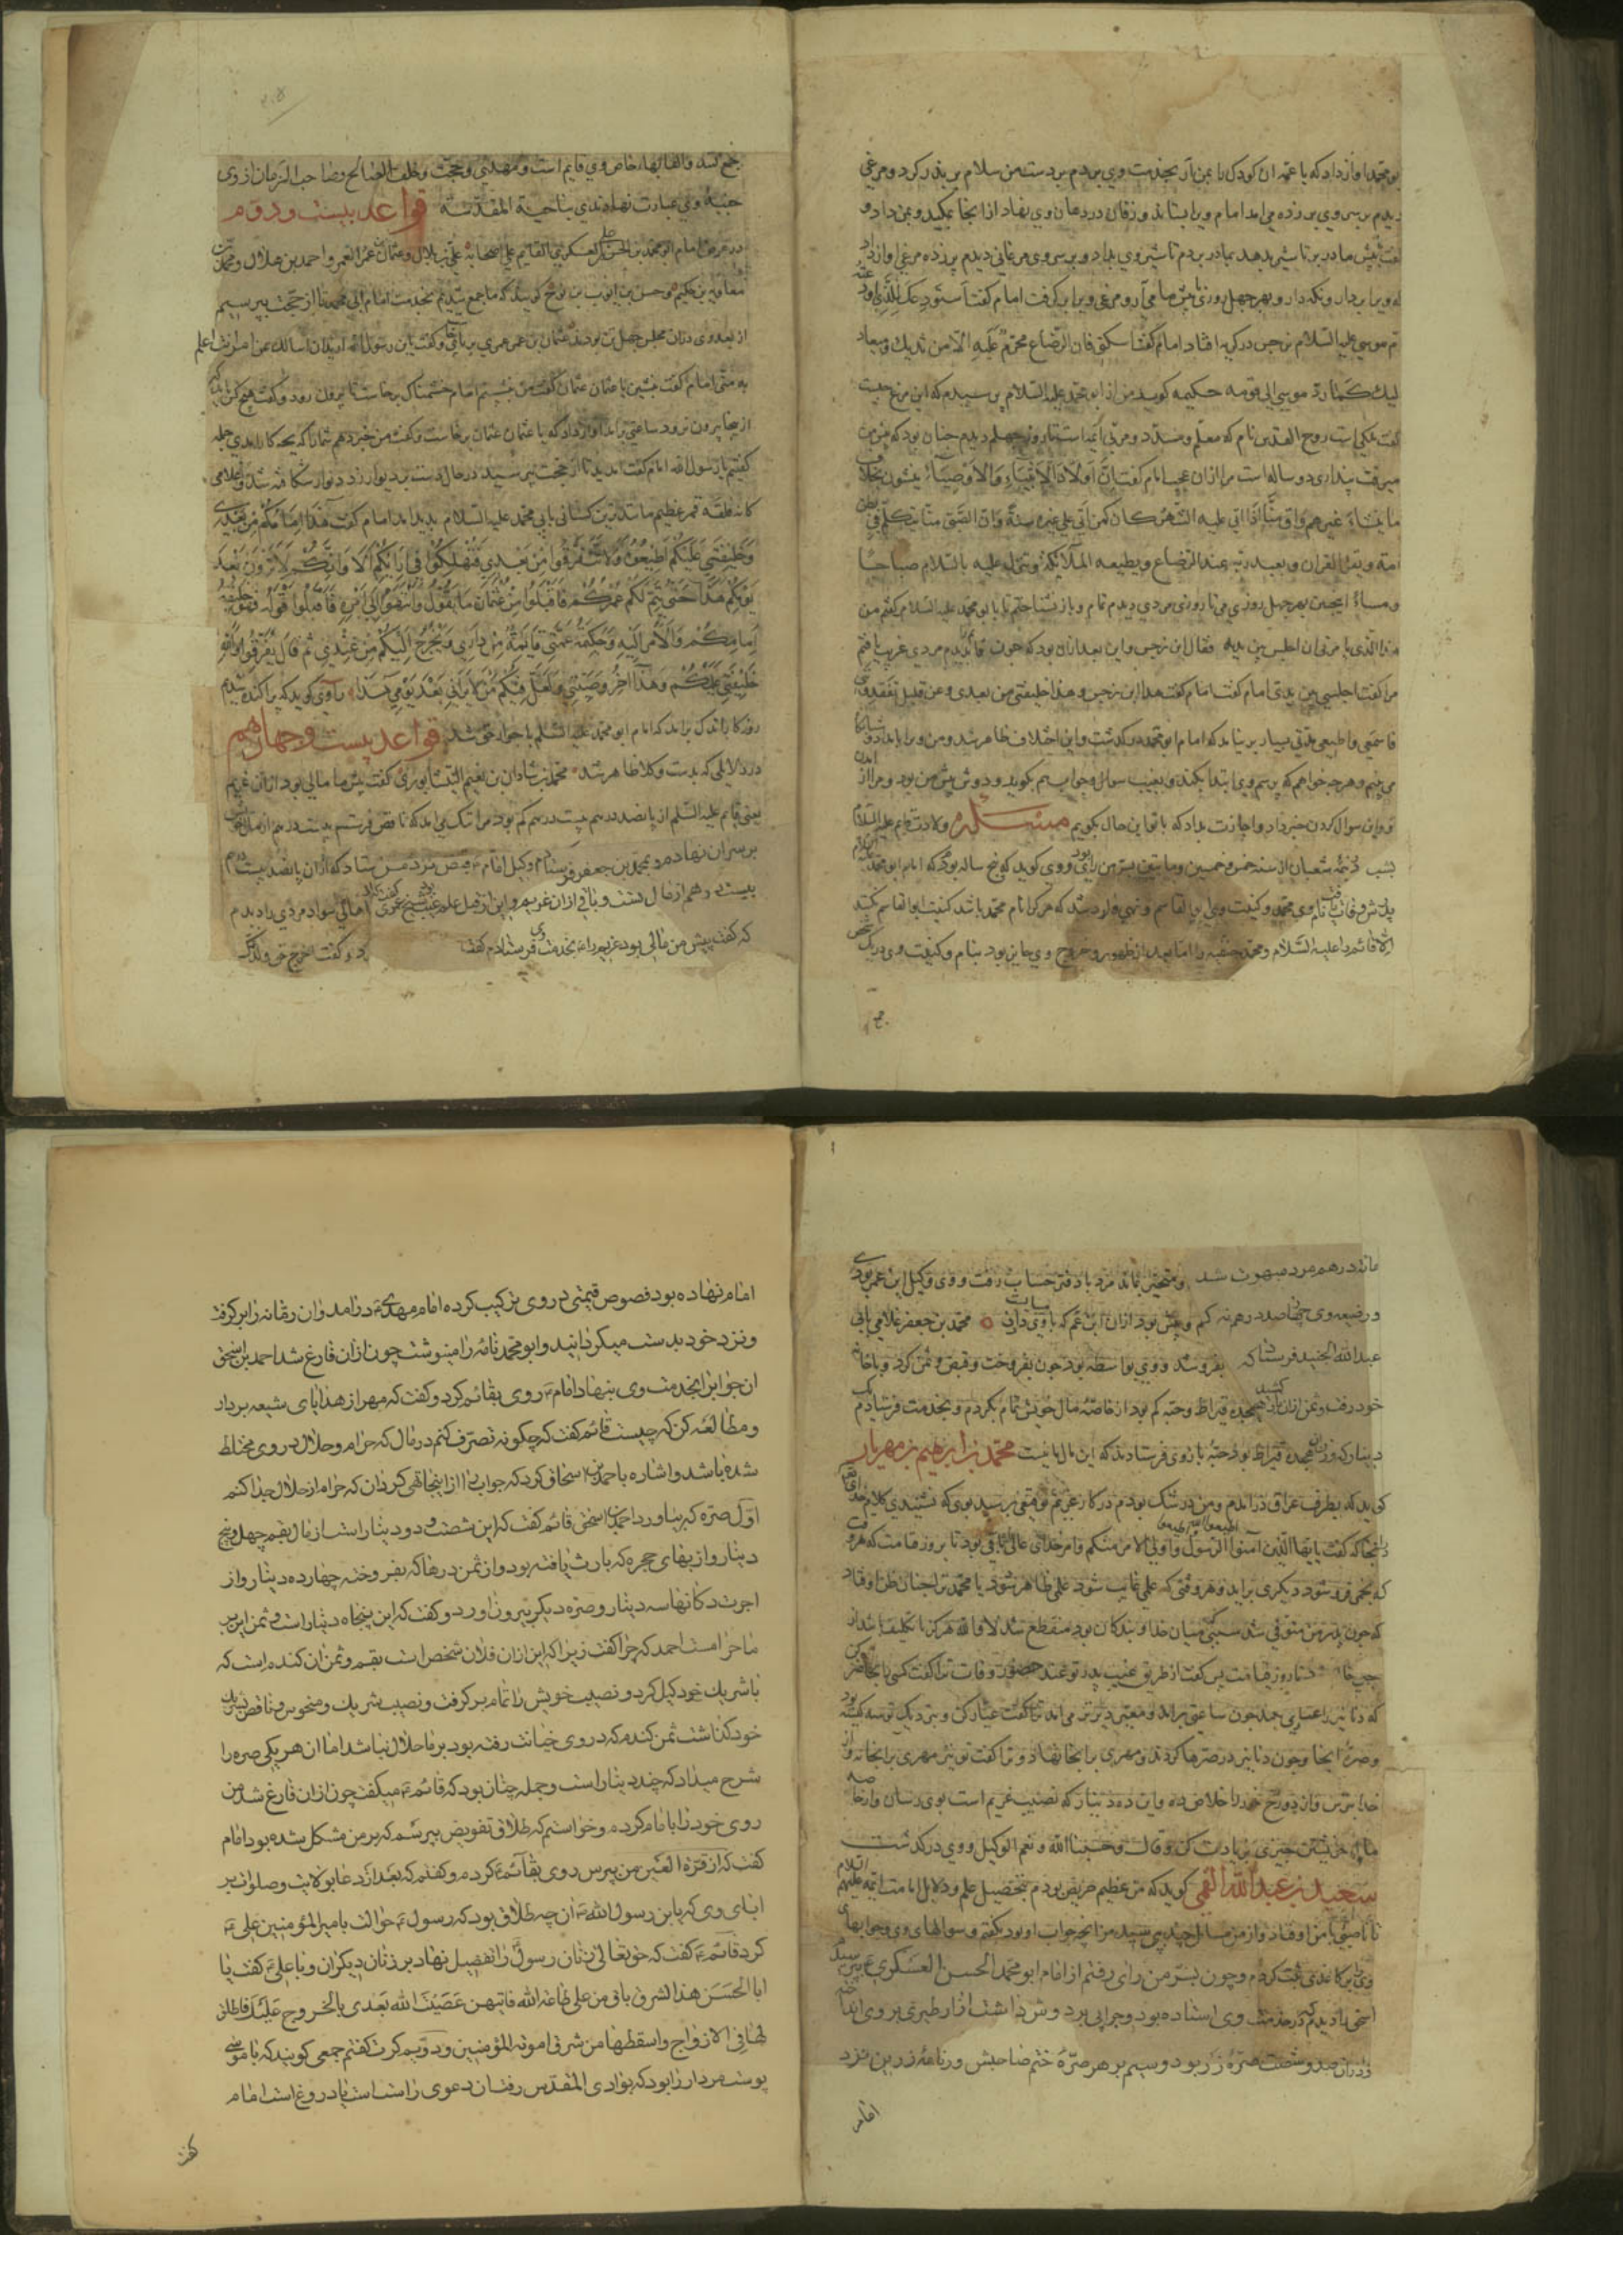 بو محمد آواز داد که یا عمه آن کودک را بمن آر بخدمت وی بردم بر دست من سلام بر پدر کرد و مرغی
دیدم بر سر وی پر زده می آمد امام ویرا بستاند و زفان در دهان وی نهاد از آنجا بمکید و بمن داد و
گفت پیش مادر بر تا شیر بدهد بمادر بردم تا شیر وی بداد و بر سر وی مرغانی دیدم پر زده مرغی را آواز داد
که ویرا بردار و نگه دار و بهر چهل روزی پیش ما می آر و مرغ ویرا برگرفت امام گفت استودعک الذی اودعته
ام موسی علیه السلام نرجس در گریه افتاد امام گفتا اسکتی فان الرضاع محرم علیه الا من ثدیک و سیعاد
الیک کما رد موسی الی امه حکیمه گوید من از ابو محمد علیه السلام پرسیدم که این مرغ چیست
گفت ملکی است روح القدس نام که معلم و مسدد و مربی ائمه است تا روز چهلم دیدم چنان بود که پیش من
میرفت پنداری دو ساله است مرا از آن عجب امام گفت ان اولاد الانبیاء و الاوصیاء ینشون بخلاف
ما ینشاء غیرهم و ان منا اذا اتی علیه الشهر کان کمن اتی علی غیره سنة و ان الصبی منا یتکلم فی بطن
امه و یقرأ القران و یعبد ربه عند الرضاع و یطیعه الملائکة و تنزل علیه بالسلام صباحا
و مساء همچنین بهر چهل روزی می تا روزی مردی دیدم تمام و باز نشناختم با ابو محمد علیه السلام گفتم من
هذا الذی یامرنی ان اجلس بین یدیه فقال ابن نرجس و این بعد از آن بود که چون مردی غریب یافتم
مرا گفت اجلسی بین یدی امام گفت هذا ابن نرجس و هذا خلیفتی من بعدی و عن قلیل تفقدونی
فاسمعی و اطیعی مدتی بسیار بر نیامد که امام ابو محمد درگذشت و این اختلاف ظاهر شد و من ویرا بامداد و شبانگاه
می بینم و هر چه خواهم که پرسم وی ابتدا بکند و بغیب سوال و جواب بگوید و دوش پیش من بود و مرا از
تو و این سوال کردن خبر داد و اجازت بداد که با تو این حال بگویم مسئله ولادت قایم علیه السلام
بشب نیمه شعبان از سنه خمس و خمسین و مایتین بسر من رای بود و وی گوید که پنج ساله بود که امام ابو محمد
پدرش وفات یافت نام وی محمد و کنیت وی ابو القاسم و نهی وارد شد که هر کرا نام محمد باشد کنیت ابو القاسم نکند
الا قائم را علیه السلام و محمد حنفیه را اما بعد از ظهور و خروج وی جایز بود بنام و کنیت وی در یک شخص
جمع
جمع کند و القابها خاص وی قایم است و مهدی و حجت و خلف الصالح و صاحب الزمان از وی
عبارت نهاده اندی بناحیة المقدسة قواعد بیست و دوم
در عرض امام ابو محمد بن الحسن العسکری القایم علی اصحابه علی بن بلال و عثمان بن عمر العمری و احمد بن هلال و محمد بن
معاویه بن حکیم و حسن بن ایوب بن نوح گویند که ما جمع شدیم بخدمت امام ابی محمد تا از حجت بپرسیم
از بعد وی در آن مجلس چهل تن بودند عثمان بن عمر عمری بر پای و گفت یابن رسول الله ارید ان اسالک عن امر انت اعلم
به منی امام گفت بنشین یا عثمان عثمان گفت من امام خشمناک برخاست تا برون رود و گفت هیچ کس نباید که
از جا برون رود ساعتی براند آواز داد که یا عثمان عثمان برخاست و گفت من خبر دهم شما را که بچه کار آمدی جمله
گفتیم یابن رسول الله امام گفت آمدید تا از حجت بپرسید در حال دست بر دیوار زد دیوار شکافته شد و غلامی
کانه فلقة قمر عظیم مانندترین کسانی بابی محمد علیه السلام پدید آمد امام گفت هذا امامکم من بعدی
و خلیفتی علیکم اطیعوه و لا تتفرقوا من بعدی فتهلکوا فی ادیانکم الا و انکم لا ترونه بعد
یومکم هذا حتی یتم لکم عمرکم فاقبلوا من عثمان ما یقول و انتهوا الی امره فاقبلوا قوله فهو خلیفة
امامکم و الامر الیه و حکیمة عمتی قایمة من داری و یخرج الیکم من عندی ثم قال تفرقوا و الله
خلیفتی علیکم و هذا آخر وصیتی و لعل فیکم من لا یرانی بعد یومی هذا راوی گوید که پراکنده شدیم
روزگار اندک برآمد که امام ابو محمد علیه السلم با جوار حق شد قواعد بیست و چهارم
در دلایلی که بدست وکلا ظاهر شد محمد بن شاذان بن نعیم النیشابوری گفت پیش ما مالی بود از آن غریم
یعنی قایم علیه السلم از پانصد درهم بیست درهم کم بود مرا ننگ می آمد که ناقص فرستم بیست درهم از مال خویش
بر سر آن نهادم و بمحمد بن جعفر فرستادم وکیل امام قبض فرستاد که از آن پانصد بیست درم
بیست درهم از مال تست و باقی از آن غریم و این از قبیل علم غیب اهالی سواد مردی را دیدم
که گفت پیش من مالی بود غریم را بخدمت وی فرستادم گفت رد کرد و گفت اخرج حق ولد عمک
ماند درهم مرد مبهوت شد و متحیر بماند مرد با دفتر حساب رفت و وی وکیل ابن عم بودی
در ضیعه وی چهار صد درهم نه کم و بیش بود از آن ابن عم که با وی دران محمد بن جعفر غلامی بابی
عبد الله الجنید فرستاد که بفروشد و وی بواسطه بود چون بفروخت و قبض و ثمن کرد و با خانه
خود رفت و ثمن از آن هجده قیراط و حبه کم بود از خاصه مال خویش تمام بکردم و بخدمت فرستادم
دینار که وزن هجده قیراط بود و حبه باز وی فرستادند که این مال ما نیست محمد بن ابرهیم بن مهریار
گوید که بطرف عراق درآمدم و من در شک بودم در کار غریم توقیعی رسید بوی که نشنیدی کلام خدا
آنجا که گفت یا ایها الذین آمنوا اطیعوا الله و اطیعوا الرسول و اولی الامر منکم و امر خدای تعالی باقی بود تا بروز قیامت که هر وقت
که نجمی فرو شود دیگری براید و هر وقتی که علی غایب شود علی ظاهر شود یا محمد ترا چنان ظن اوفتاد
که چون پدر من متوفی شد سببی میان خدا و بندگان بود منقطع شد لا و الله هرگز تا تکلیف باشد از
تا روز قیامت پس گفت از طریق غیب پدر تو عند حضور وفات ترا گفت کسی را بحاضر کن
که دنانیر را عیار می چند چون ساعتی براند و معتبر دیرتر می آمد ترا گفت عیار کن و بنزدیک تو سه کیسه بود
و صره آنجا و چون دنانیر در صرها کردند و مهری برانجا نهاد و ترا گفت تو نیز مهری برانجا نه و از
خدا بترس و از دوزخ خود را خلاص ده و این ده دینار که نصیب غریم است بوی رسان و از خاصه
مال خویشتن چیزی زیادت کن و قال و حسبنا الله و نعم الوکیل و وی درگذشت
سعید بن عبد الله القمی گوید که من عظیم حریص بودم بتحصیل علم و دلایل امامت ائمه علیهم السلام
تا ناصبی با من اوفتاد و از من مسائل چند پرسید من آنچه جواب او بود بگفتم و سوالهای وی و جوابهای
وی بر کاغذی ثبت کردم و چون بسر من رای رفتم از امام ابو محمد الحسن العسکری ع پرسید
اسحق را دیدم که در خدمت وی استاده بود و جرابی بر دوش داشت ازار طبری بر وی
در آن صد و شصت صره زر بود و سیم بر هر صره ختم صاحبش و رمانه زرین نزد
امام
امام نهاده بود فصوص قیمتی در وی ترکیب کرده امام مهدی ع درآمد و آن رمانه را برگرفت
و نزد خود بدست میگردانید و ابو محمد نامه را مینوشت چون از آن فارغ شد احمد بن اسحق
آن جراب را بخدمت وی بنهاد امام ع روی بقائم کرد و گفت که مهر از هدایای شیعه بردار
و مطالعه کن که چیست قائم گفت که چگونه تصرف کنم در مال که حرام و حلال در وی مختلط
شده باشد و اشاره باحمد بن اسحاق کرد که جراب را از اینجا تهی گردان که حرام از حلال جدا کنم
اول صره که بیاورد احمد بن اسحق قائم گفت که این شصت و دو دینار است از مال بقم چهل و پنج
دینار و از بهای حجره که بارث یافته بود و از ثمن درها که بفروخته چهارده دینار و از
اجرت دکانها سه دینار و صره دیگر بیرون آورد و گفت که این پنجاه دینار است و ثمن این بر
ما حرام است احمد که چرا گفت زیرا که این از آن فلان شخص است بقم و ثمن آن گندم است که
با شریک خود کیل کرد و نصیب خویش را تمام برگرفت و نصیب شریک و منحوس و ناقص بشریک
خود گذاشت ثمن گندم که در وی خیانت رفته بود بر ما حلال نباشد اما آن هر یکی صره را
شرح میداد که چند دینار است و جمله چنان بود که قائم ع میگفت چون از آن فارغ شد من
روی خود را با امام کردم و خواستم که طلاق تفویض بپرسم که بر من مشکل شده بود امام
گفت که از قرة العین من بپرس روی بقائم ع کردم و گفتم که بعد از دعا بولایت و صلوات بر
ابای وی که یابن رسول الله ع آن چه طلاق بود که رسول ع حوالت بامیر المؤمنین علی ع
کرد قائم ع گفت که حق تعالی زنان رسول را تفضیل نهاد بر زنان دیگران و با علی ع گفت یا
ابا الحسن هذا الشرف باق من علی طاعة الله فایتهن عصیت الله بعدی بالخروج علیک فاطلق
لها فی الازواج و اسقطها من شرف امومة المؤمنین و دویم کرت گفتم جمعی گویند که با موسی
پوست مردار را بود که بوادی المقدس رفت آن دعوی راست است یا دروغ است امام
گفت